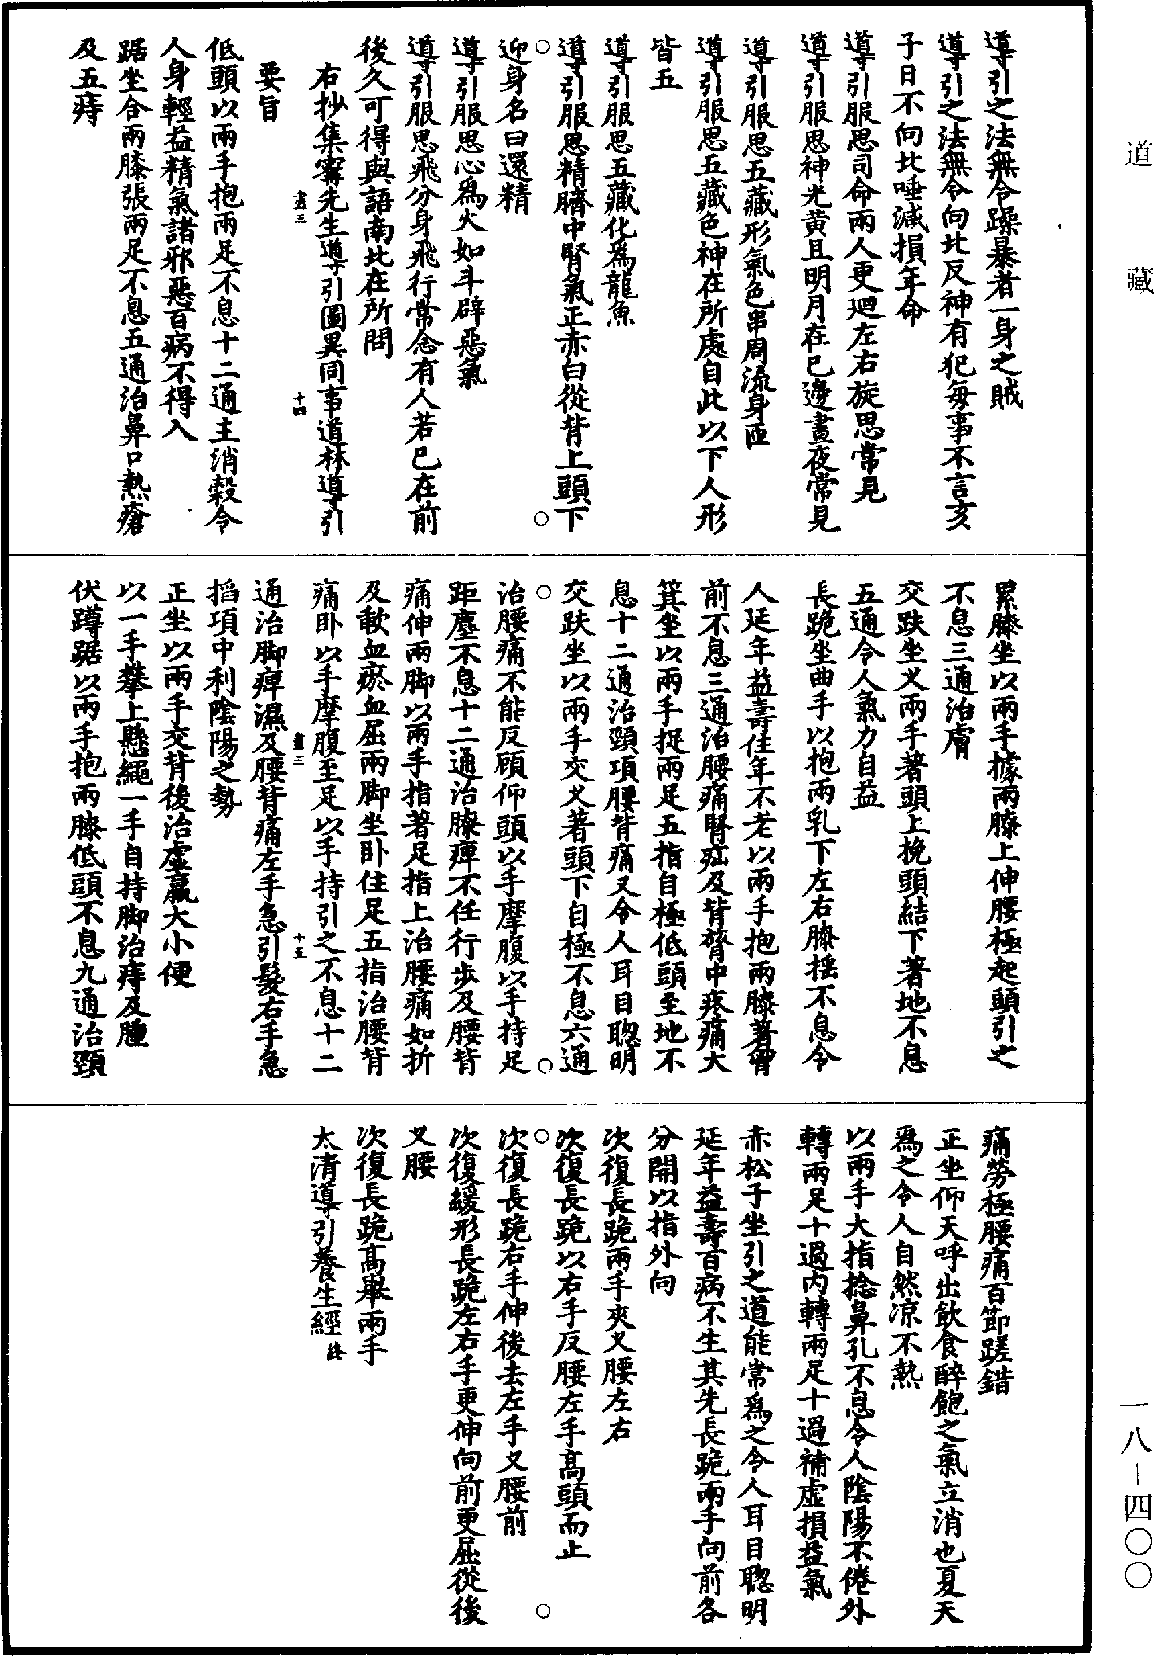 道藏
一八-四〇〇
導引之法無令躁暴者一身之賊
導引之法無令向北反神有犯每事不言亥
子日不向北唾減損年命
導引服思司命兩人更迴左右旋思常見
導引服思神光黄且明月在已邊晝夜常見
導引服思五藏形氣色串周流身匝
導引服思五藏色神在所處自此以下人形
皆五
導引服思五藏化爲龍魚
導引服思精臍中腎氣正赤白從背上頭下
迎身名曰還精
導引服思心爲火如斗辟惡氣
導引服思飛分身飛行常念有人若已在前
後久可得與語南北在所問
右抄集甯先生導引圖異同事道林導引
盡三
十四
要旨
低頭以兩手抱兩足不息十二通主消穀令
人身輕益精氣諸邪惡百病不得入
踞坐合兩膝張兩足不息五通治鼻口熱瘡
及五痔
累膝坐以兩手據兩膝上伸腰極起頭引之
不息三通治膚
交趺坐叉兩手著頭上挽頭結下著地不息
五通令人氣力自益
長跪坐曲手以抱兩乳下左右膝揺不息令
人延年益壽住年不老以兩手抱兩膝著胷
前不息三通治腰痛腎疝及背膂中疼痛大
箕坐以兩手捉兩足五指自極低頭至地不
息十二通治頸項腰背痛又令人耳目聰明
交趺坐以兩手交叉著頭下自極不息六通
治腰痛不能反顧仰頭以手摩腹以手持足
距壅不息十二通治膝痺不任行步及腰背
痛伸兩脚以兩手指著足指上治腰痛如折
及軟血瘀血屈兩脚坐卧住足五指治腰背
痛卧以手摩腹至足以手持引之不息十二
通治脚痺濕及腰背痛左手急引髮右手急
盡三
十五
搯項中利陰陽之勢
正坐以兩手交背後治虛羸大小便
以一手攀上懸繩一手自持脚治痔及腫
伏蹲踞以兩手抱兩膝低頭不息九通治頸
痛勞極腰痛百節蹉錯
正坐仰天呼出飲食醉飽之氣立消也夏天
爲之令人自然凉不熱
以兩手大指捻鼻孔不息令人陰陽不倦外
轉兩足十過内轉兩足十過補虛損益氣
赤松子坐引之道能常爲之令人耳目聰明
延年益壽百病不生其先長跪兩手向前各
分開以指外向
次復長跪兩手夾叉腰左右
次復長跪以右手反腰左手高頭而止
次復長跪右手伸後去左手叉腰前
次復緩形長跪左右手更伸向前更屈從後
叉腰
次復長跪高舉兩手
太清導引養生經終